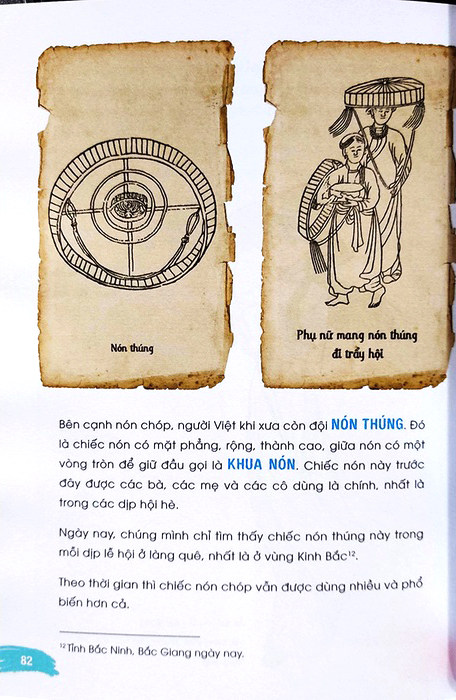 Nón thúng
Phụ nữ mang nón thúng
đi trẩy hội
Bên cạnh nón chóp, người Việt khi xưa còn đội NÓN THÚNG. Đó
là chiếc nón có mặt phẳng, rộng, thành cao, giữa nón có một
vòng tròn để giữ đầu gọi là KHUA NÓN. Chiếc nón này trước
đây được các bà, các mẹ và các cô dùng là chính, nhất là
trong các dịp hội hè.
Ngày nay, chúng mình chỉ tìm thấy chiếc nón thúng này trong
mỗi dịp lễ hội ở làng quê, nhất là ở vùng Kinh Bắc¹².
Theo thời gian thì chiếc nón chóp vẫn được dùng nhiều và phổ
biến hơn cả.
¹² Tỉnh Bắc Ninh, Bắc Giang ngày nay.
82